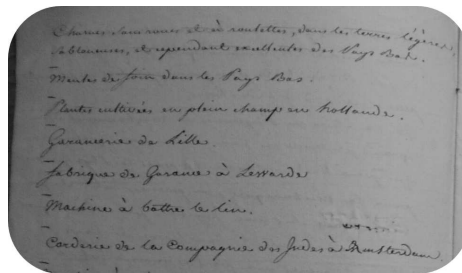 Charrues sans roues et à roulettes, dans les terres légères,
sablonneuses, et cependant excellentes des Pays Bas.
Meules de foin dans les Pays Bas.
Plantes cultivées en plein champ en hollande.
Garancerie de Lille.
fabrique de Garance à Lewarde
Machine à battre le lin.
Corderie de la Compagnie des Indes à Amsterdam.